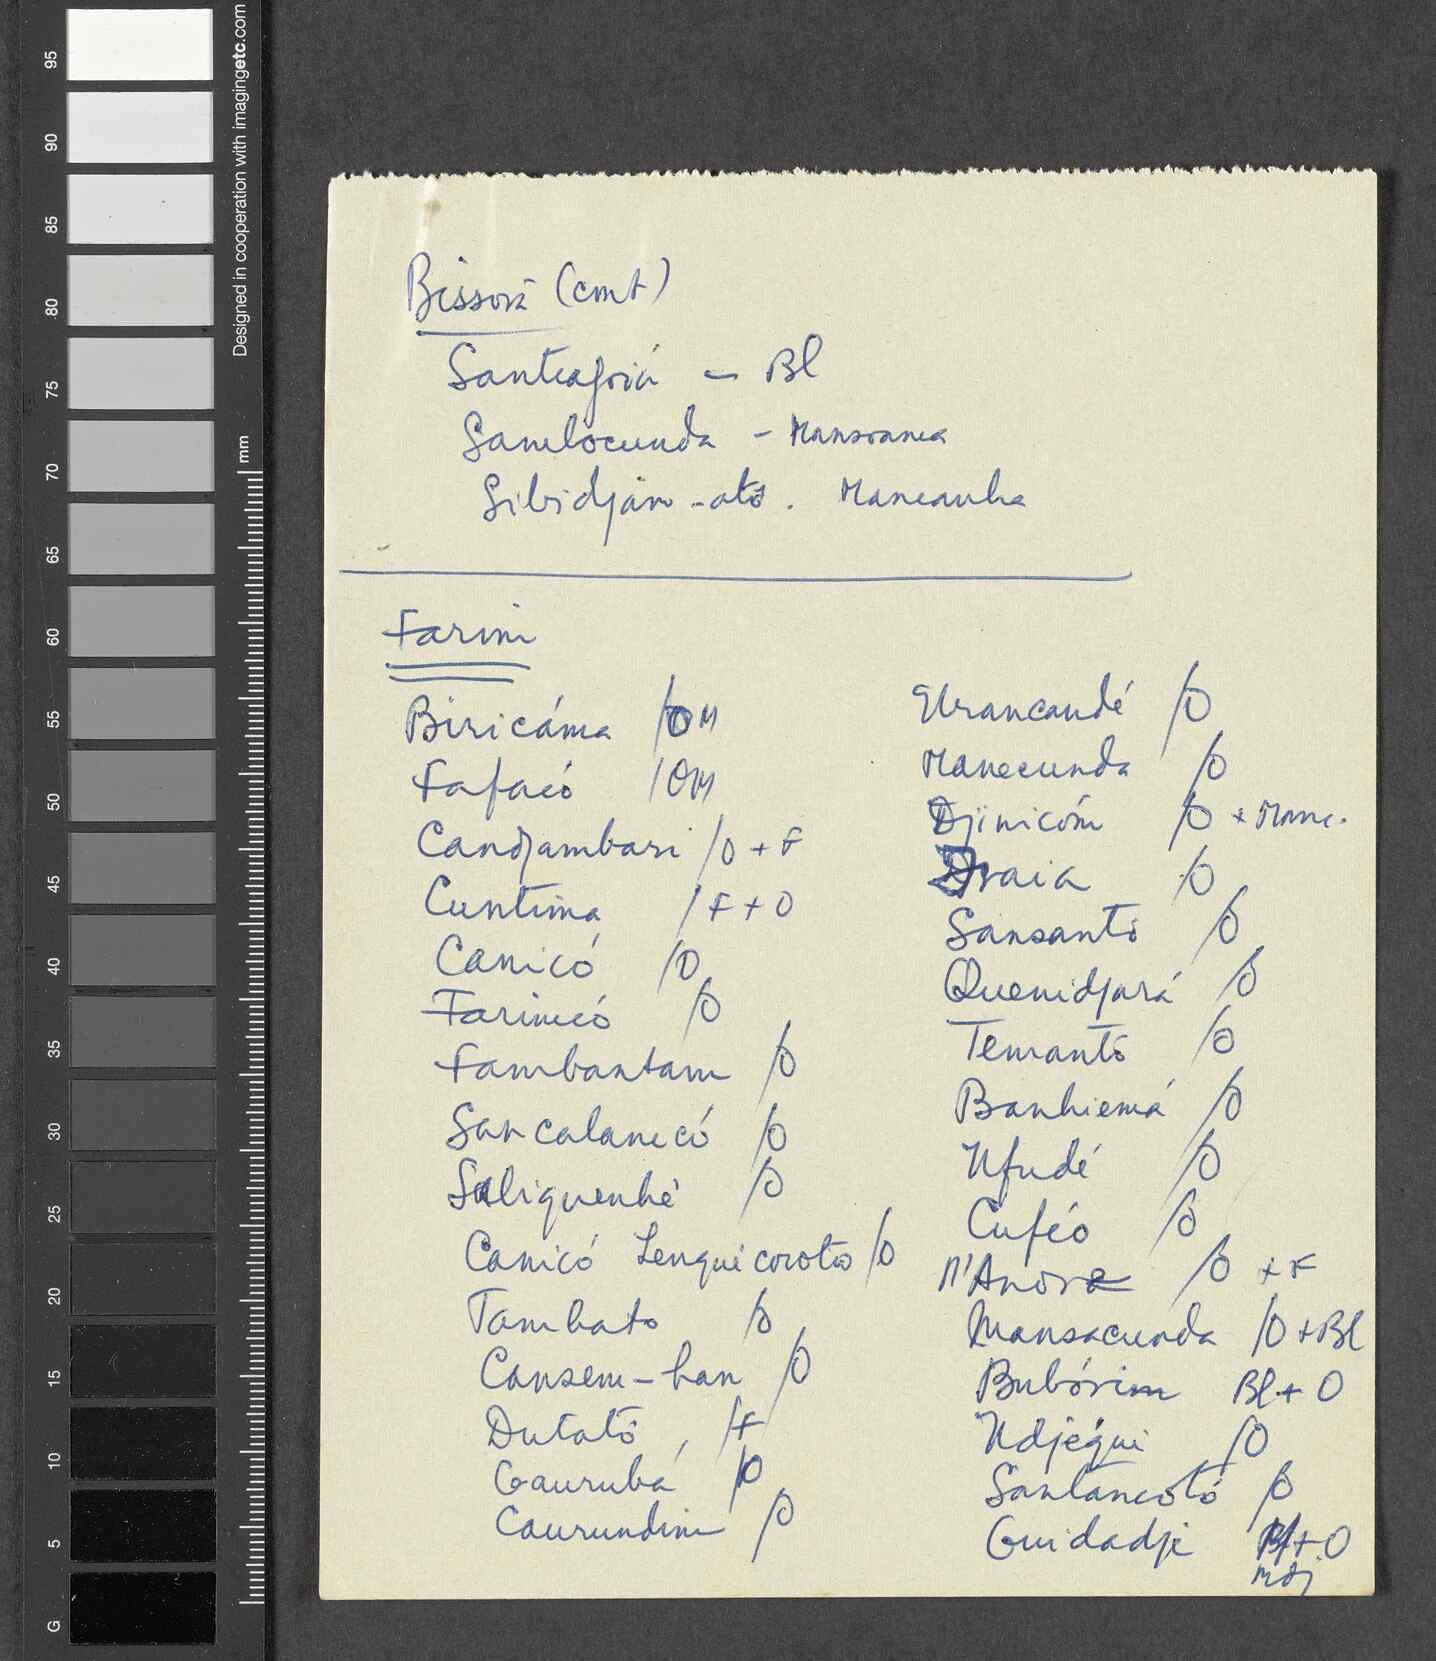 Bissorã (cont)
Santeafriá - Bl
Sambocunda - Mansoanca
Sibidjam-ató. Mancanha
Farim
Biricáma /OM
Fafacó /OM
Candjambari /O + F
Cuntima / F + O
Canicó /O
Farincó /O
Fambantam /O
Sancalancó /O
Saliquenhé /O
Canicó Lenquicoroto /O
Tambato /O
Cansem-han /O
Dutató, /F
Gaurubá /O
Caurundim /O
Urancandé /O
Manecunda /O
Djinicóm /O + Manc.
Draia /O
Sansantó /O
Quenidjará /O
Temantó /O
Banhiemá /O
Nfudé /O
Cuféo /O
N'Andra /O + F
Mansacunda /O + Bl
Bubórim Bl + O
Ndjégui /O
Santancotó /O
Guidadje + O
Mdj
95
90
85
80
75
70
65
60
55
50
45
40
35
30
25
20
15
10
5
G
mm
Designed in cooperation with imagingetc.com